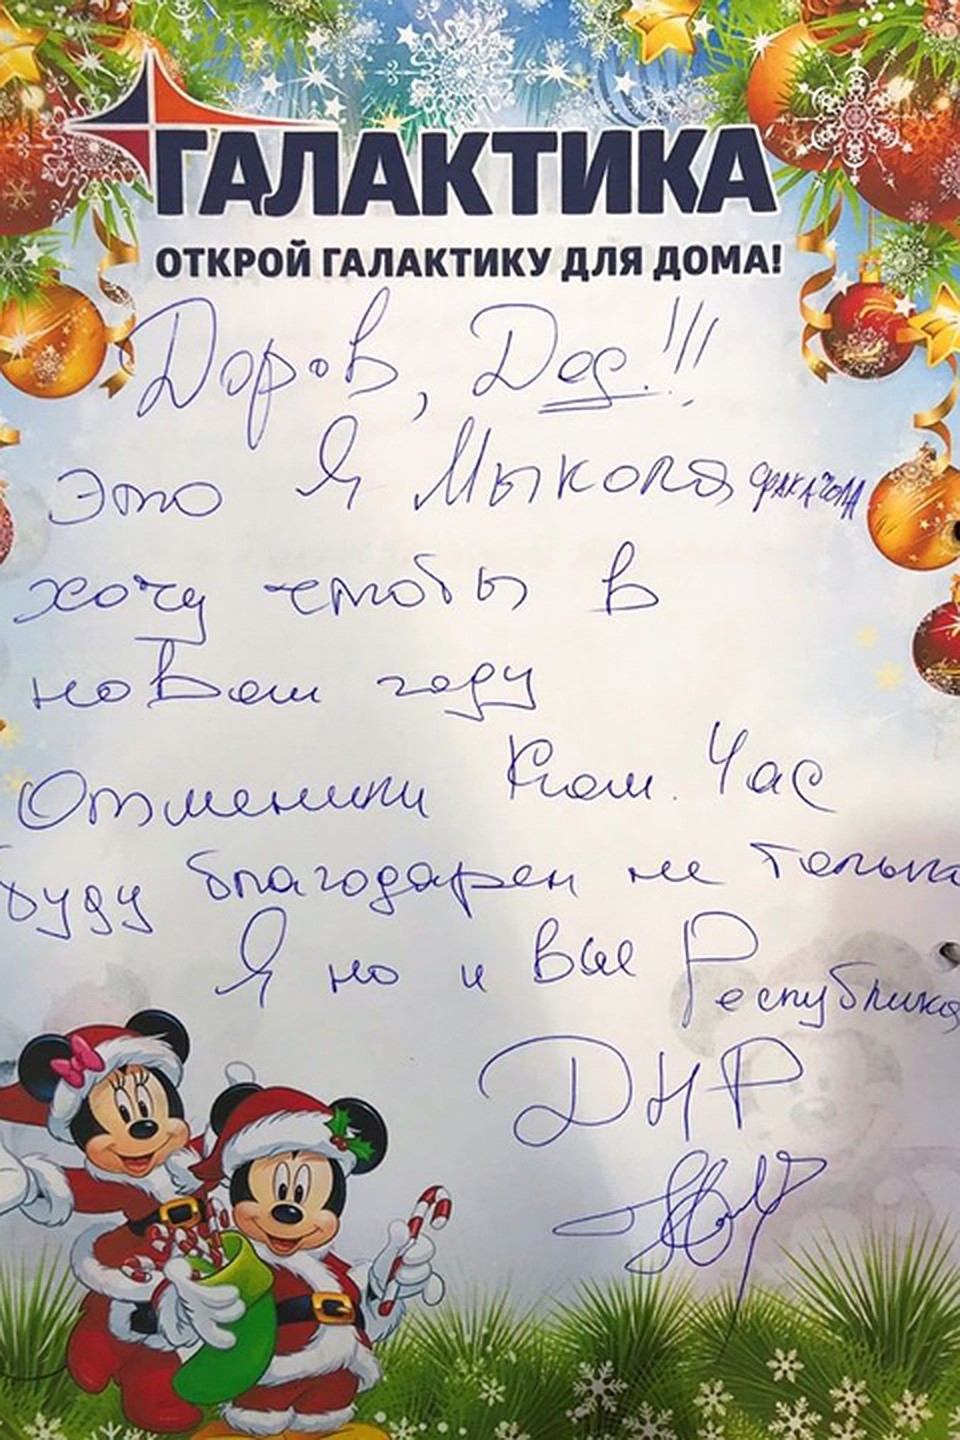 ГАЛАКТИКА
ОТКРОЙ ГАЛАКТИКУ ДЛЯ ДОМА!
Доров, Дед!!!
Это Я Мыкола
хочу чтобы в
новом году
Отменили Ком. Час
буду благодарен не только
Я но и Вся Республика
ДНР